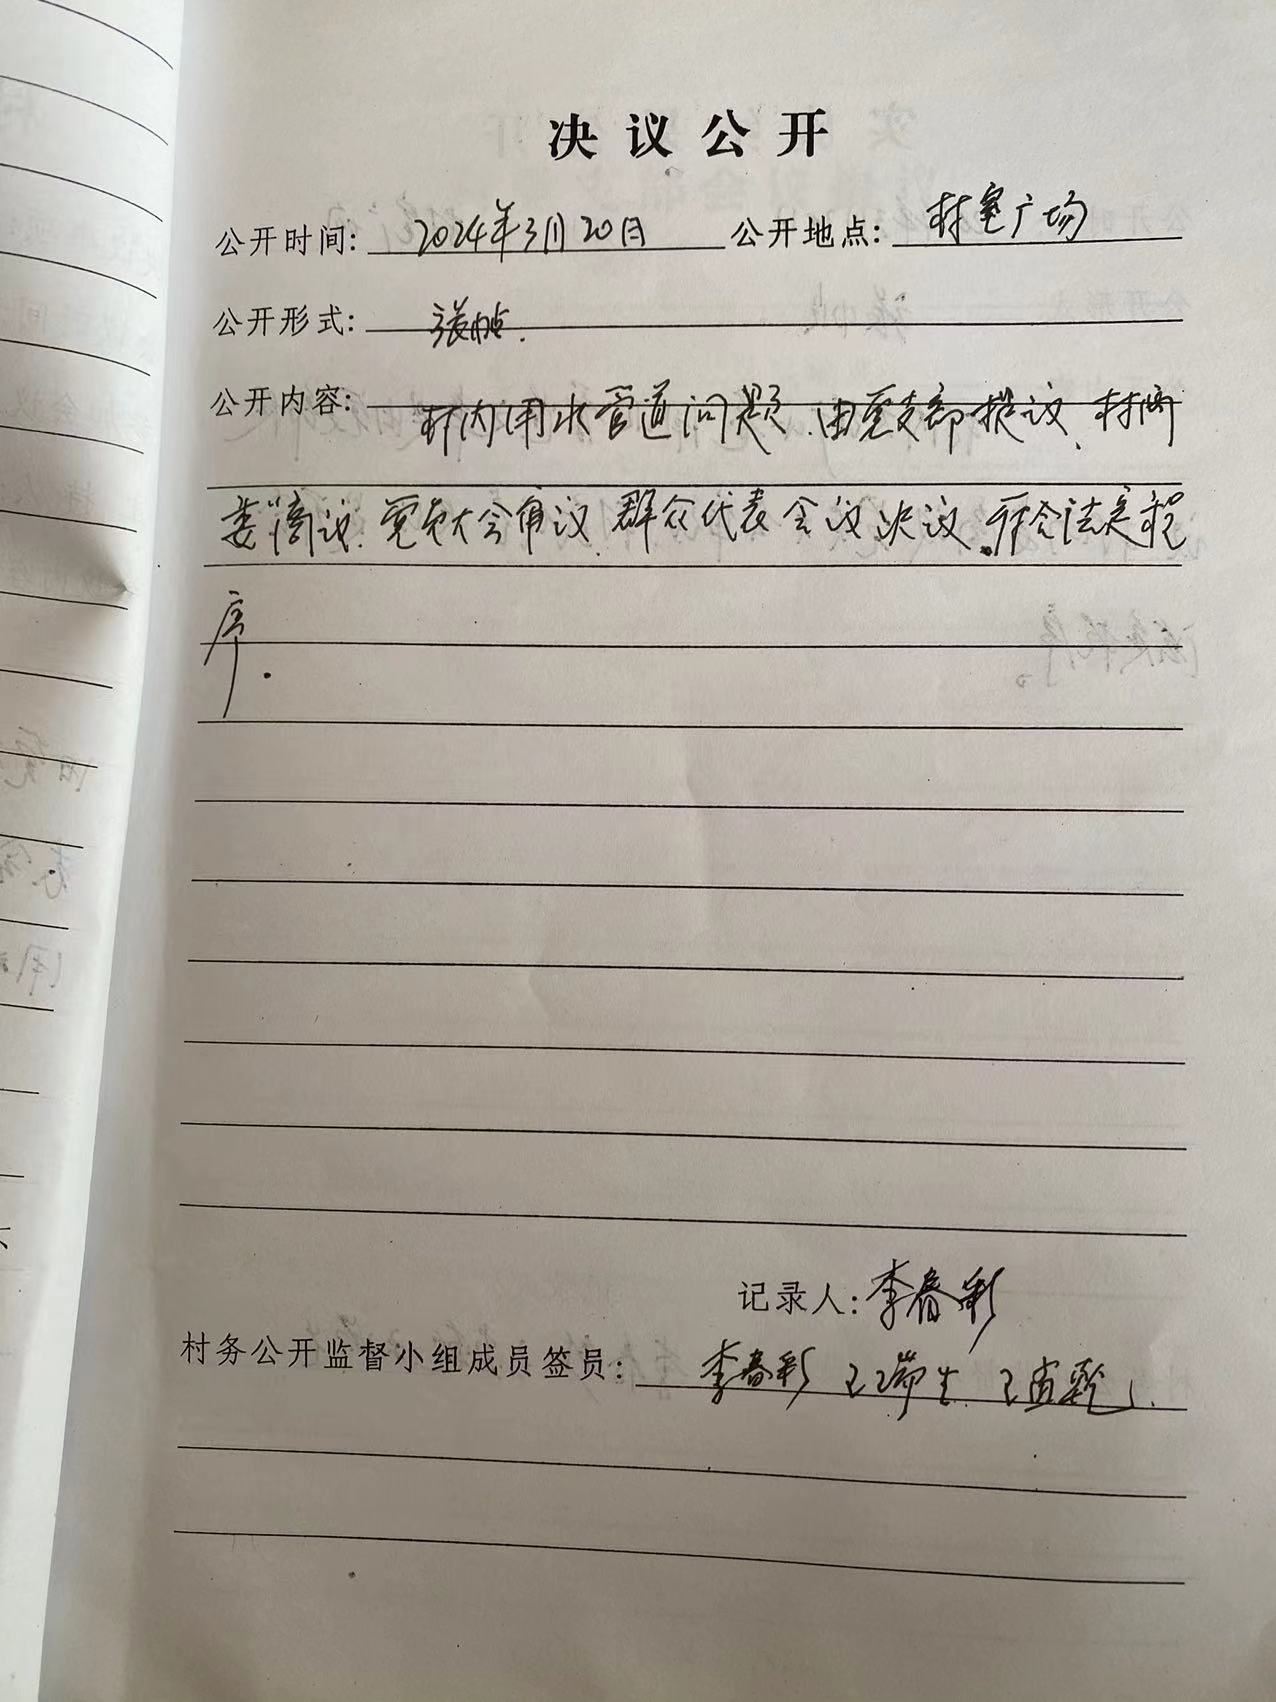 决议公开
公开时间: 2024年3月20日 公开地点: 村室广场
公开形式: 张帖.
公开内容: 村内用水管道问题.由党支部提议、村两
委商议.党员大会审议.群众代表会议决议.符合法定程
序.
记录人: 李春彩
村务公开监督小组成员签员: 李春彩 王瑞生